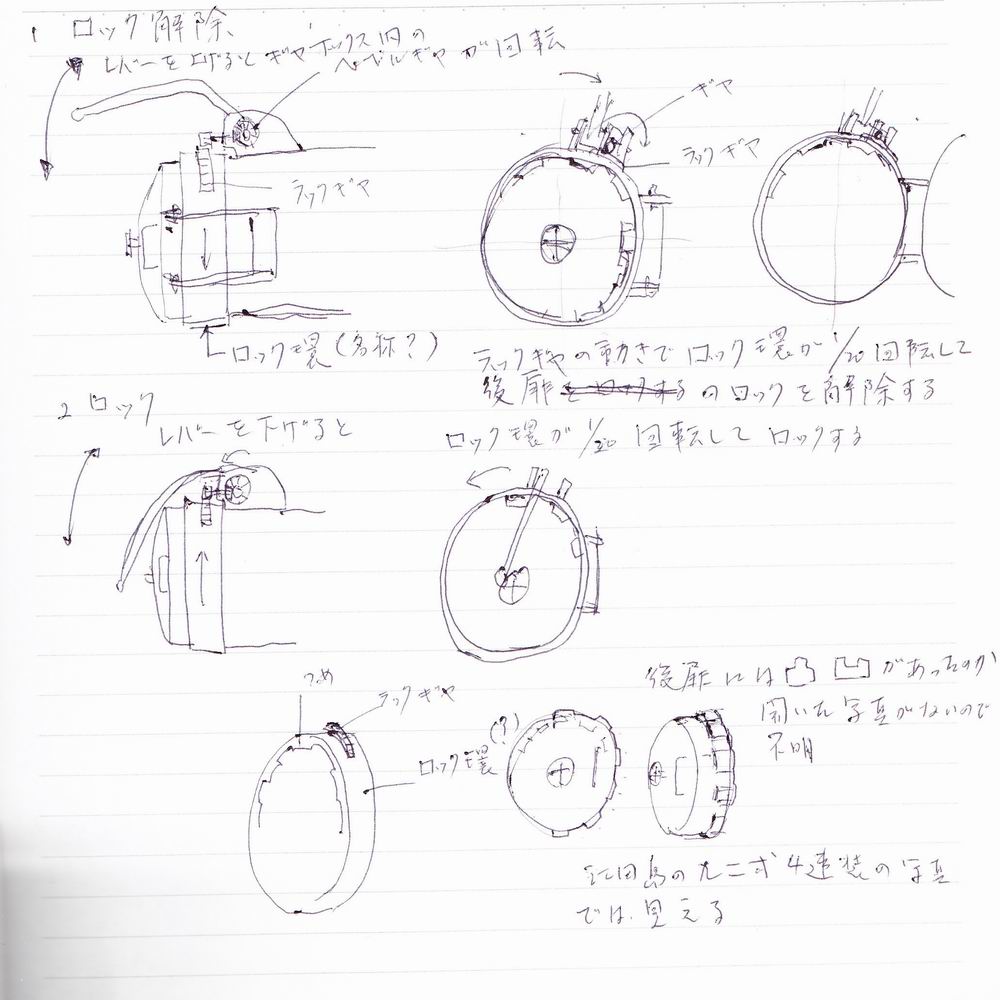 1 ロック解除
レバーを上げるとギヤボックス内の
ベベルギヤが回転
ギヤ
ラックギヤ
ラックギヤ
ロック環(名称?)
ラックギヤの動きでロック環が1/20回転して
後扉のロックを解除する
2 ロック
レバーを下げると
ロック環が1/20回転してロックする
つめ
ラックギヤ
ロック環
(?)
後扉には があったのか
開いた写真がないので
不明
江田島の九二式4連装の写真
では見える